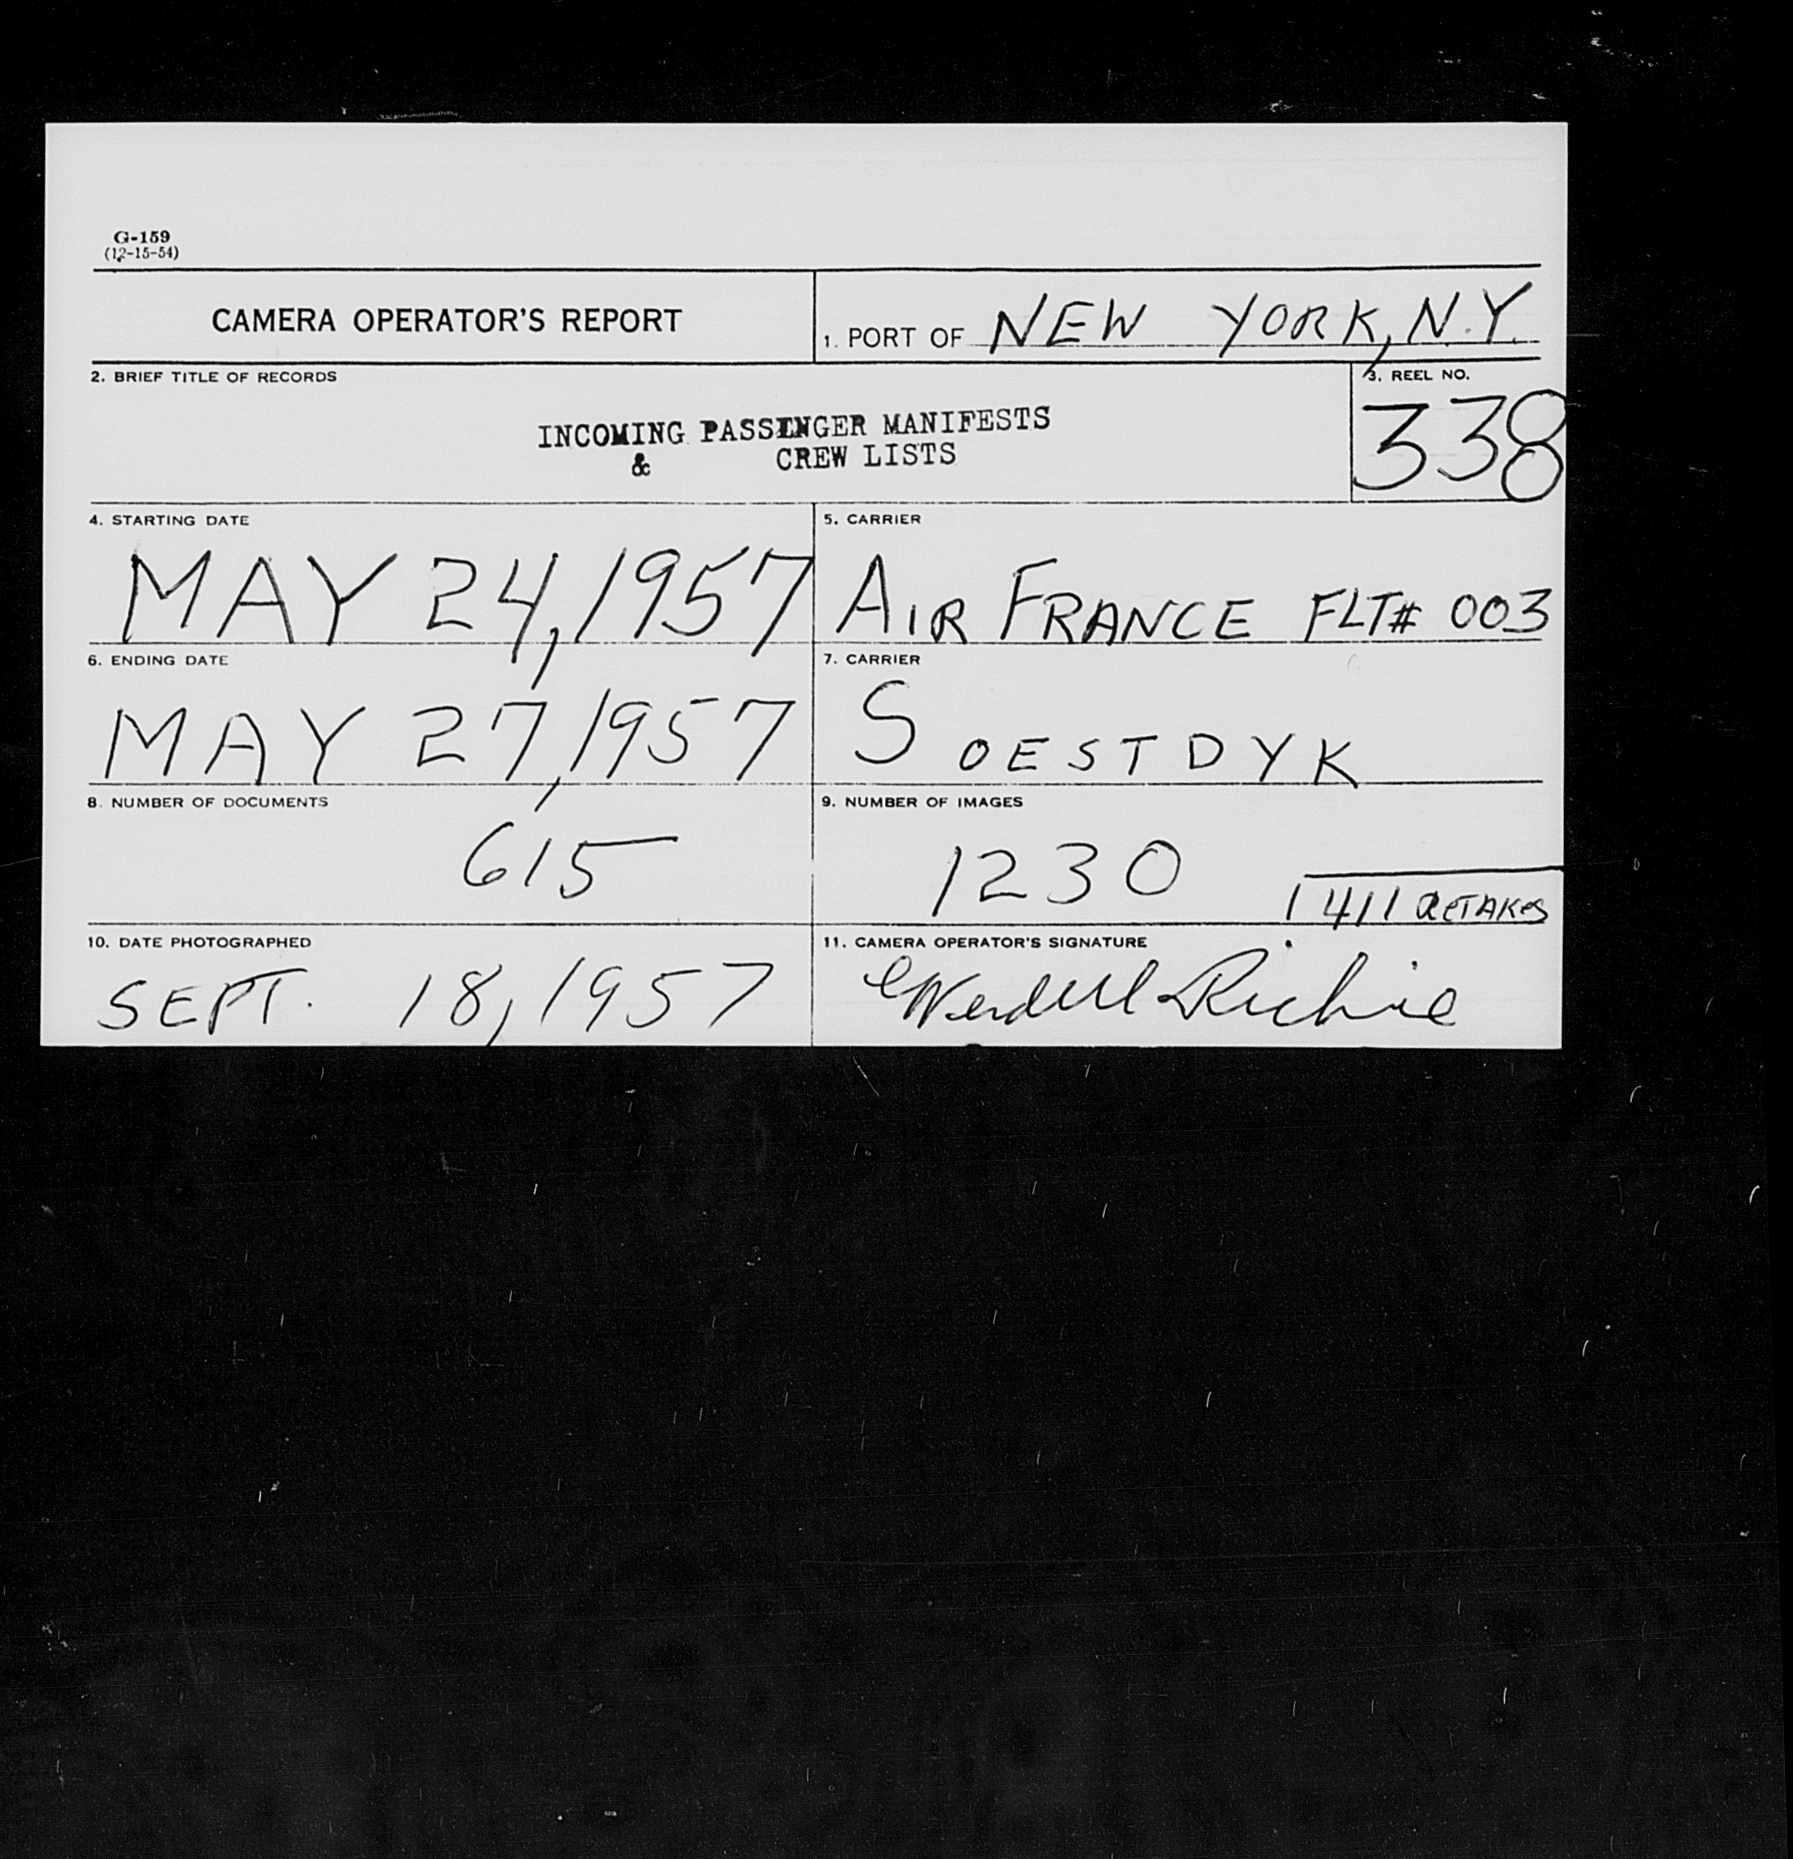 G-159
(12-15-54)
CAMERA OPERATOR'S REPORT
1. PORT OF NEW YORK, N.Y.
2. BRIEF TITLE OF RECORDS
INCOMING PASSENGER MANIFESTS
& CREW LISTS
3. REEL NO.
338
4. STARTING DATE
MAY 24, 1957
5. CARRIER
AIR FRANCE FLT# 003
6. ENDING DATE
MAY 27, 1957
7. CARRIER
SOESTDYK
8. NUMBER OF DOCUMENTS
615
9. NUMBER OF IMAGES
1230
1411 RETAKES
10. DATE PHOTOGRAPHED
SEPT. 18, 1957
11. CAMERA OPERATOR'S SIGNATURE
Wendell Richie